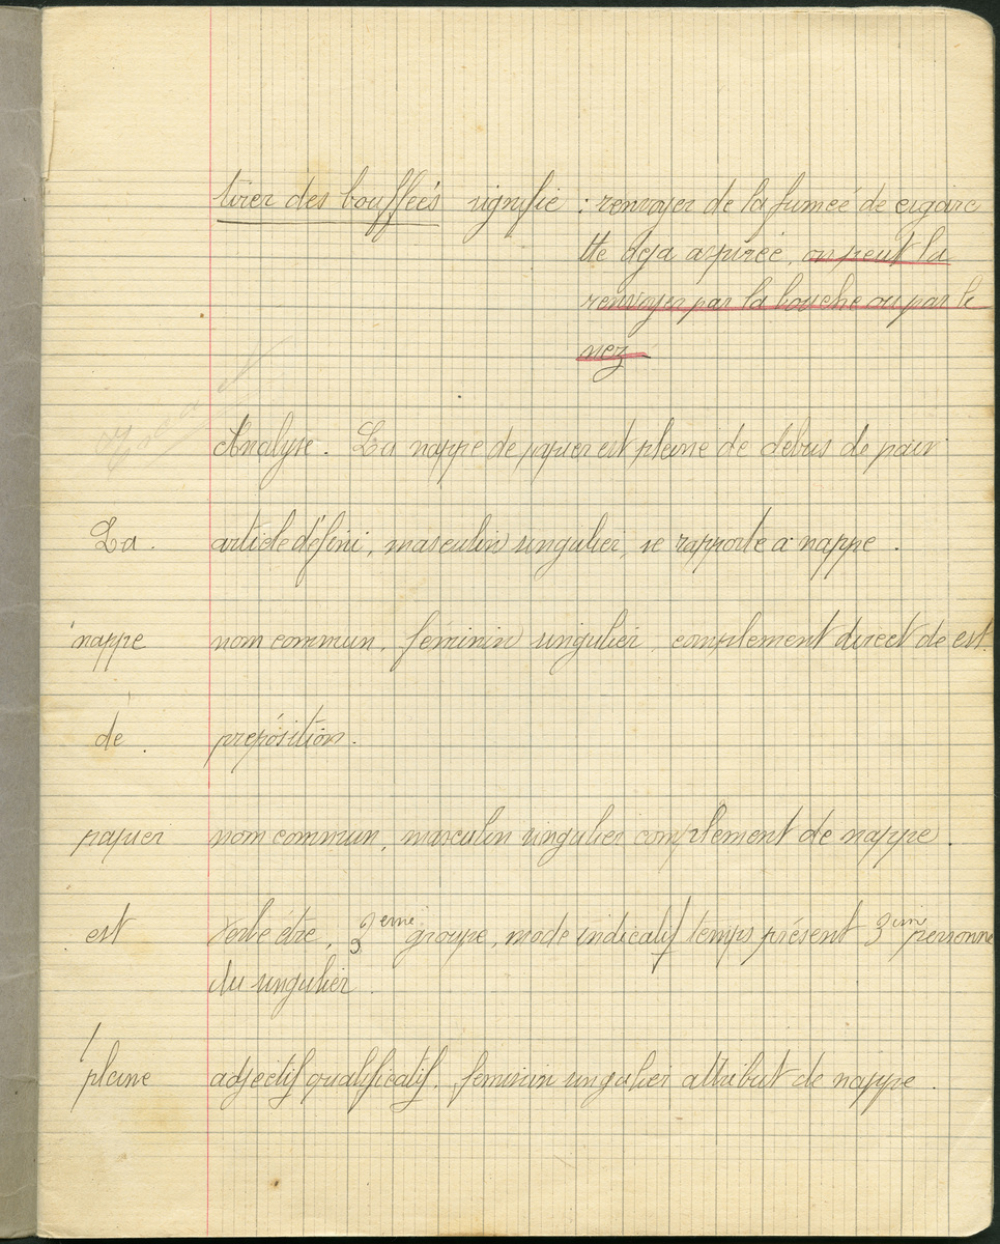 tirer des bouffées signifie : renvoyer de la fumée de cigare
tte deja aspirée, on peut la
renvoyer par la bouche ou par le
nez
Analyse. La nappe de papier est pleine de debris de pain
La. article défini, masculin singulier, se rapporte a nappe.
nappe nom commun, féminin singulier, complement direct de est.
de. préposition.
papier nom commun, masculin singulier complement de nappe.
est Verbe être, 3ème groupe, mode indicatif temps présent 3ème personne
du singulier.
pleine adjectif qualificatif, feminin singulier attribut de nappe.